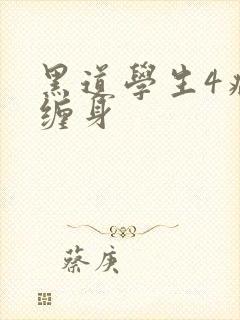 黑道學生4
缠身
蔡庚